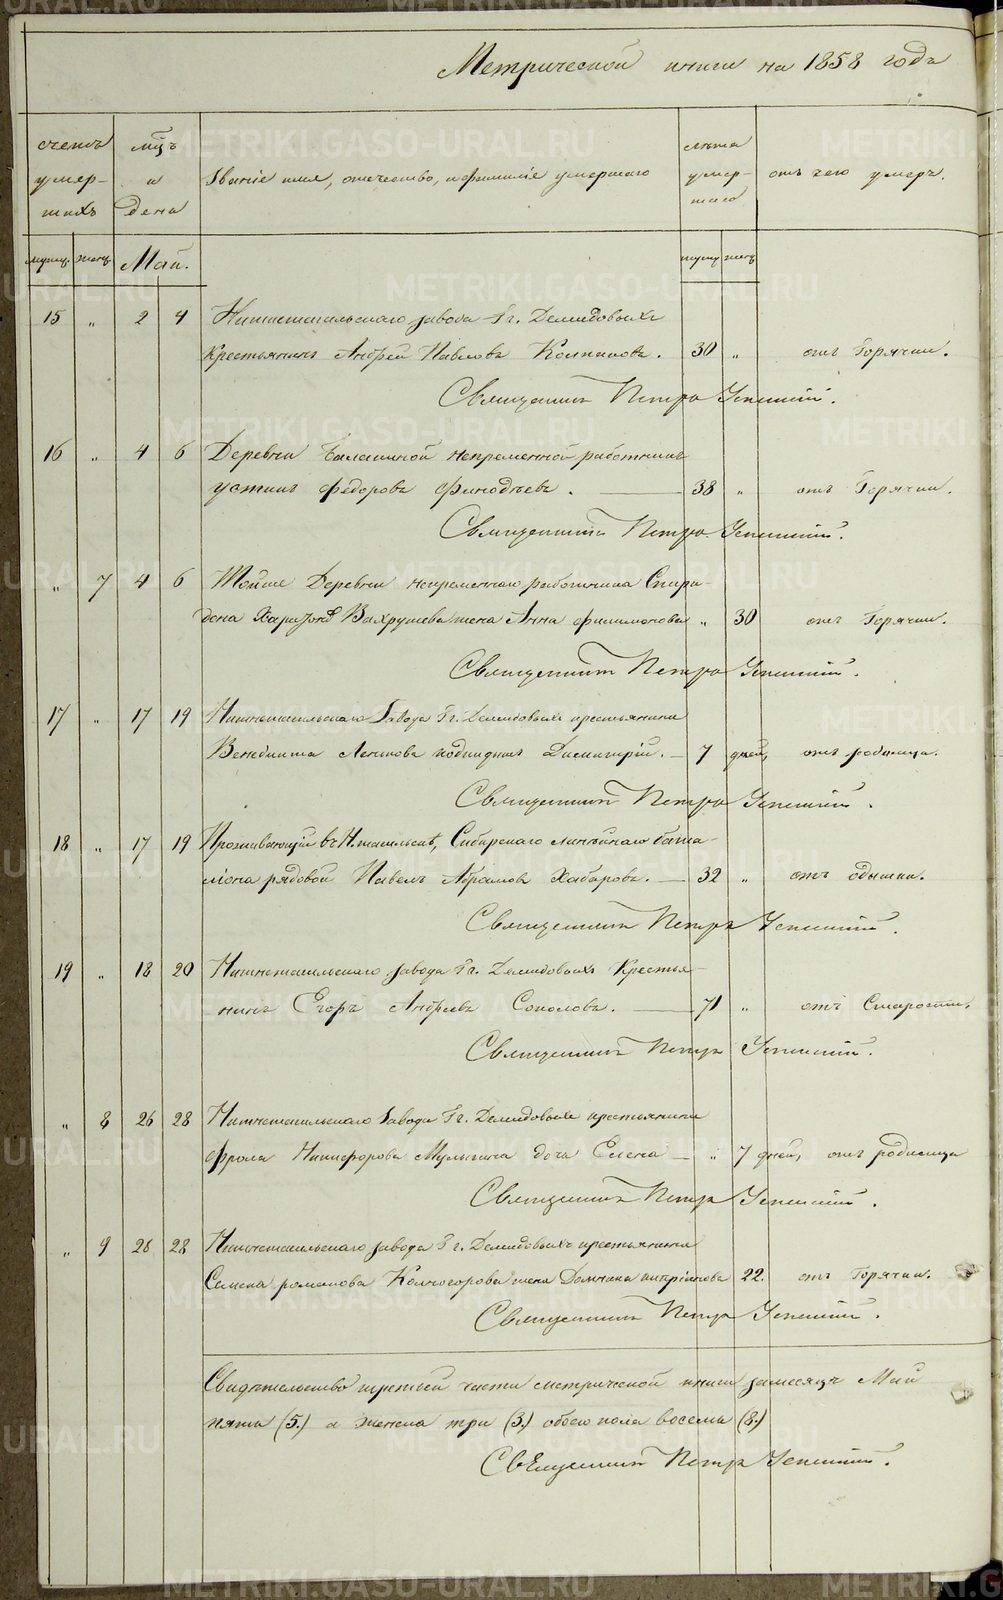 Метрической книги на 1858 годъ
счетъ умер-шихъ
мцъ и дена
Званіе имя, отчество, и фамиліе умершаго
лѣта умер-шаго
отъ чего умеръ.
мужс. женс. Май. мужс женс
15 „ 2 4 Нижнетагильскаго завода Гг. Демидовыхъ
Крестьянинъ Андрей Павловъ Колпаковъ. 30 „ отъ Горячки.
Священникъ Петръ Успенскій.
16 „ 4 6 Деревни Балакиной непременной работникъ
Устинъ Федоровъ Финодѣевъ. 38 „ отъ Горячки.
Священникъ Петръ Успенскій.
„ 7 4 6 Тойже Деревни непременнаго работника Спири-
дона Харитонова Вахрушева жена Анна Филимонова „ 30 отъ Горячки.
Священникъ Петръ Успенскій.
17 „ 17 19 Нижнетагильскаго Завода Гг. Демидовыхъ крестьянина
Венедикта подкидышъ Димитрій. 7 дней, отъ родимца.
Священникъ Петръ Успенскій.
18 „ 17 19 Проживающій въ Н.тагильскѣ, Сибирскаго линѣйнаго бата-
ліона рядовой Павелъ Абрамовъ Хабаровъ. 32 „ отъ одышки.
Священникъ Петръ Успенскій.
19 „ 18 20 Нижнетагильскаго завода Гг. Демидовыхъ Крестья-
нинъ Егоръ Андреевъ Соколовъ. 71 „ отъ Старости.
Священникъ Петръ Успенскій.
„ 8 26 28 Нижнетагильскаго Завода Гг. Демидовыхъ крестьянина
Фрола Никифорова Мулыгина дочь Елена „ 7 дней, отъ родимца
Священникъ Петръ Успенскій.
„ 9 26 28 Нижнетагильскаго завода Гг. Демидовыхъ крестьянина
Семена Романова Колногорова жена Домника 22. отъ Горячки.
Священникъ Петръ Успенскій.
Свидѣтельство третьей части метрической книги за месяцъ Май
пять (5.) а женска три (3.) обоего пола восемь (8.)
Священникъ Петръ Успенскій.